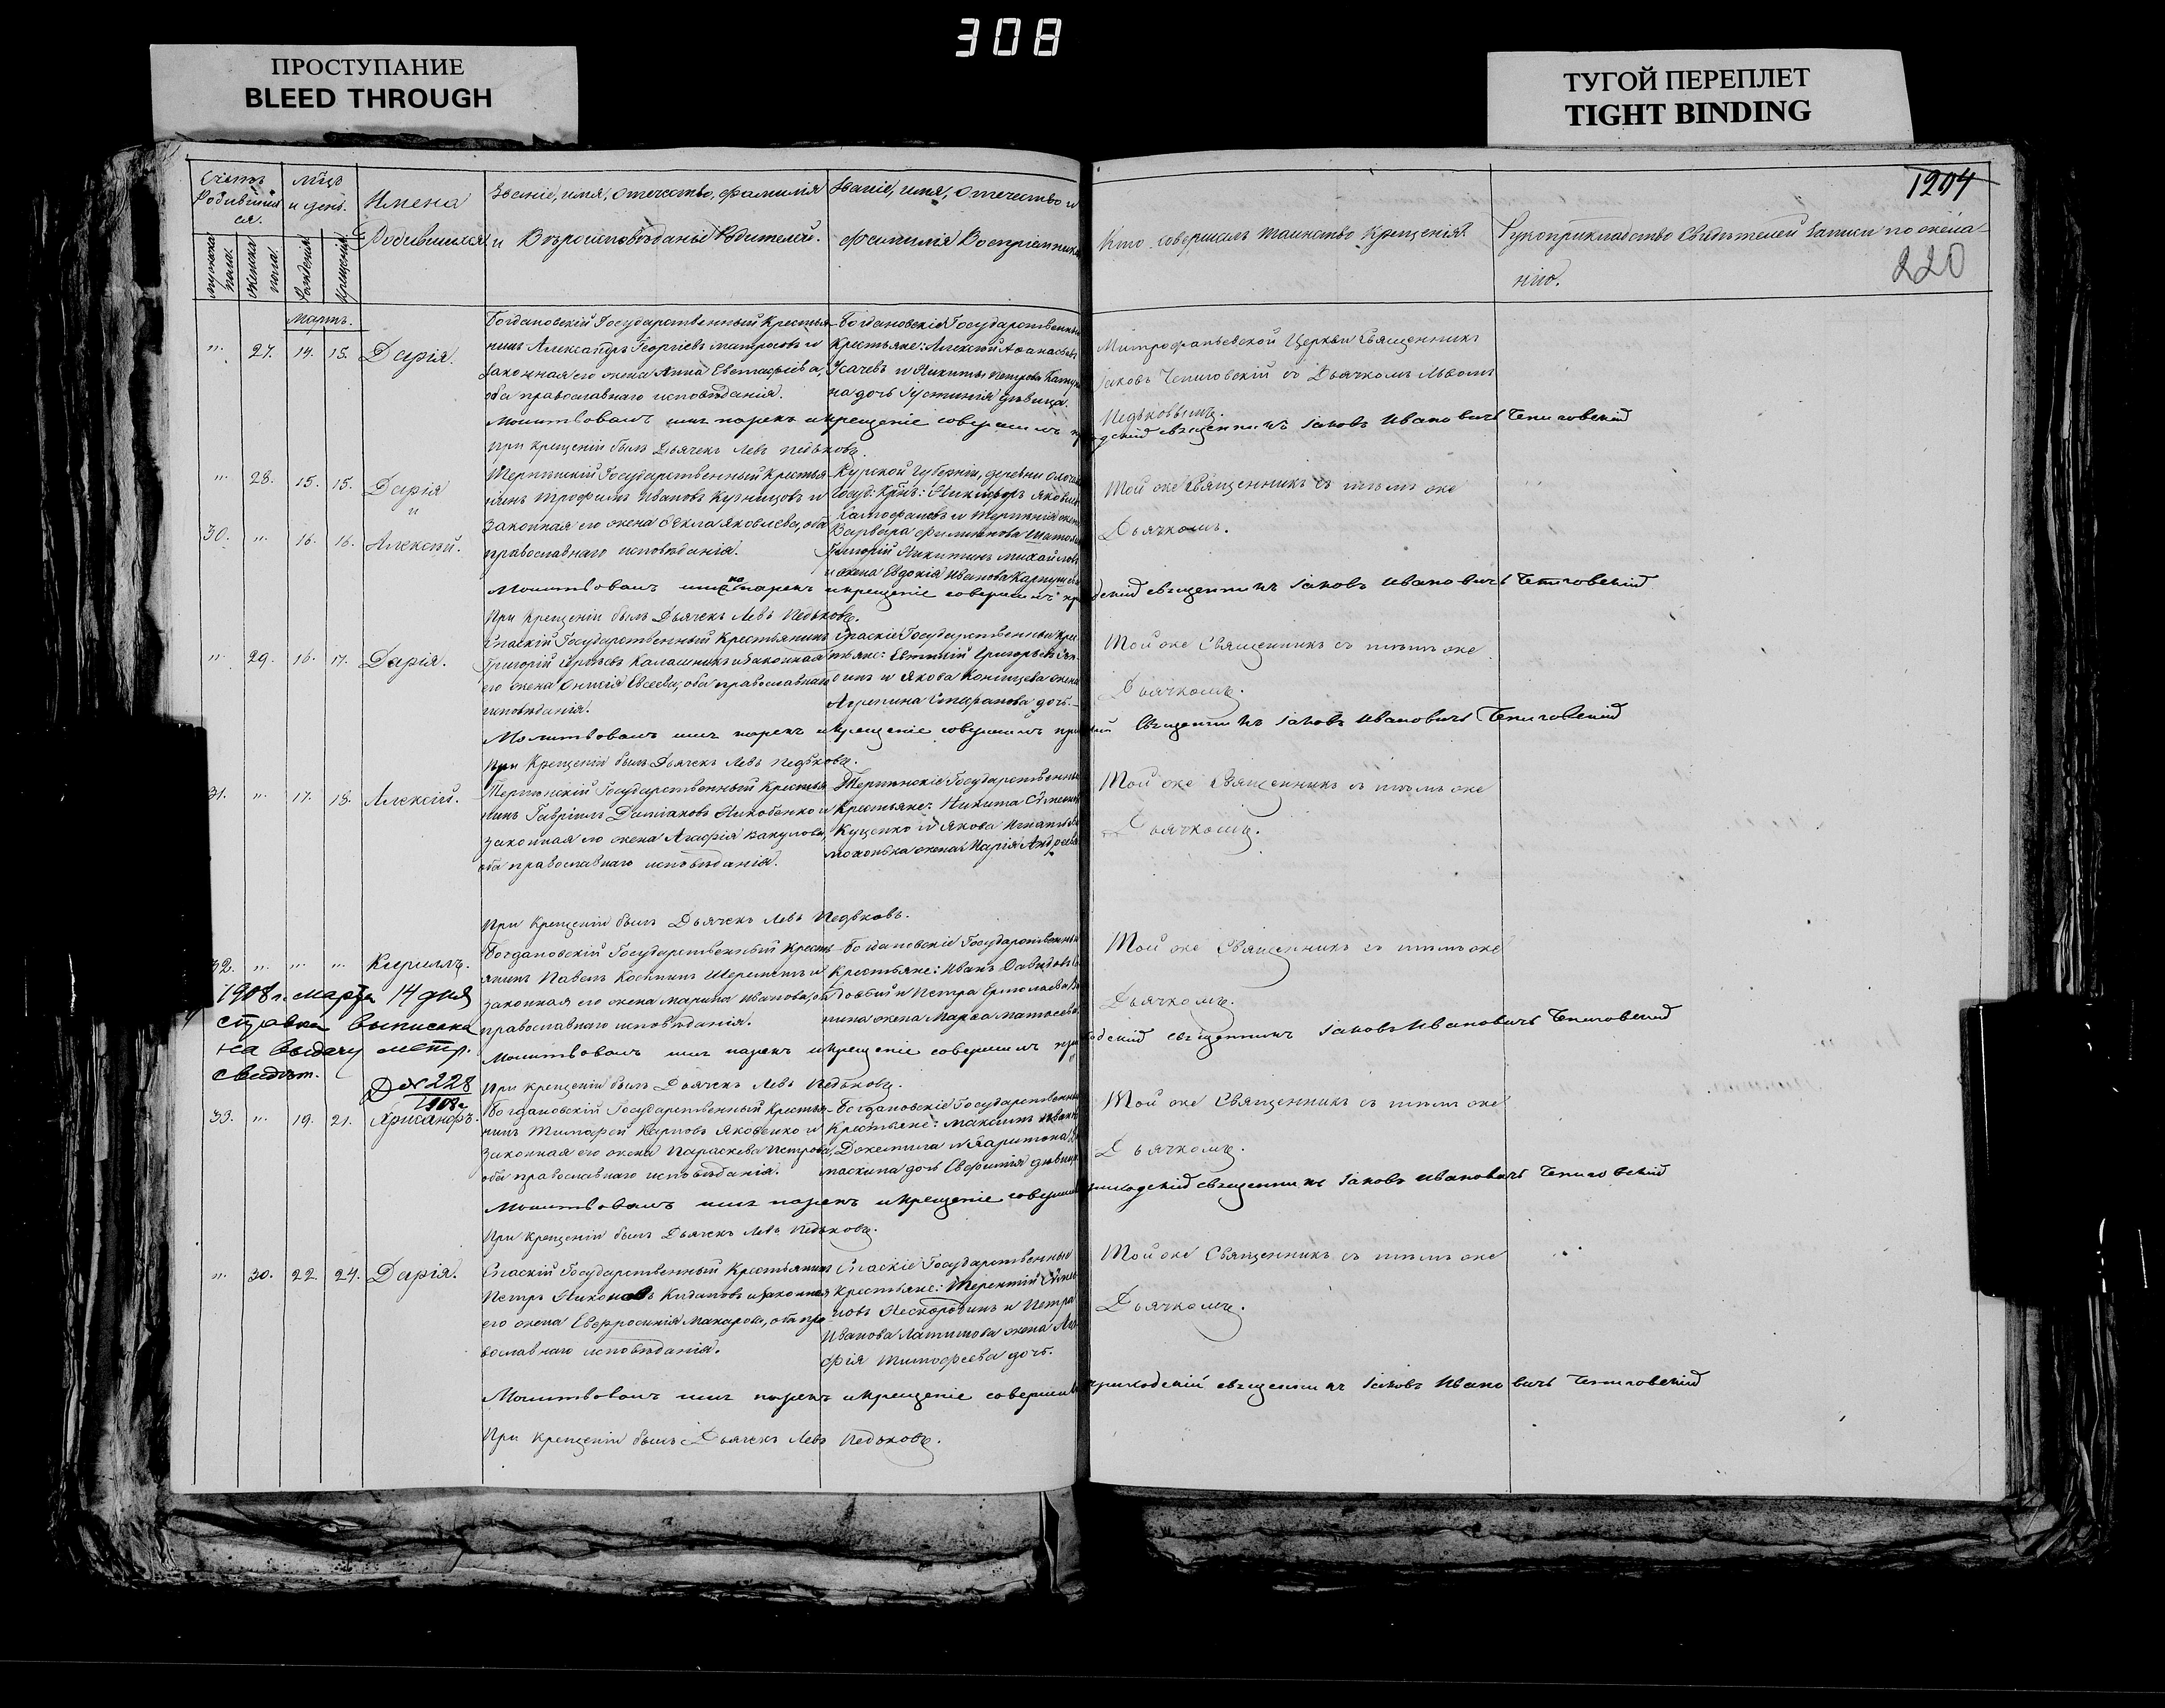 308
ПРОСТУПАНИЕ
BLEED THROUGH
ТУГОЙ ПЕРЕПЛЕТ
TIGHT BINDING
1204
220
Счетъ Родившихся.
мужеска пола.
женска пола.
Мѣцъ и день.
Рожденія
Крещенія
Имена Родившихся
Званіе, имя, отечество, фамилія
и Вѣроисповѣданіе Родителей.
Званіе, имя, Отечество и
фамилія Воспріемника
Кто совершалъ таинство Крещенія.
Рукоприкладство Свидѣтелей Записи по жела-
нію.
Мартъ.
" 27. 14. 15. Дарія.
Богдановскій Государственный Крестья-
нинъ Александръ Георгіевъ Матросовъ и
законная его жена Анна Евстафіева,
оба православнаго исповѣданія.
Богдановскіе Государственные
Крестьяне: Алексѣй Аѳанасьевъ
Усачевъ и Никиты Петрова
на дочь Іустинія дѣвица.
Митрофаньевской Церкви Священникъ
Іаковъ Чепиговскій съ Дьячкомъ Львомъ
Педьковымъ.
Молитвовалъ имя нарекъ и крещеніе совершилъ священникъ Іаковъ Ивановичъ Чепиговскій
При крещеніи былъ Дьячекъ Левъ Педьковъ.
" 28. 15. 15. Дарія
и
30. " 16. 16. Алексѣй.
Терпѣнскій Государственный Крестья-
нинъ Трофимъ Ивановъ Кузнецовъ и
законная его жена Ѳекла Яковлева, оба
православнаго исповѣданія.
Курской Губерніи, деревни
Госуд: Крнъ: Никифоръ Яковлевъ
Варвара Филимонова
Григорій Никитинъ Михайловъ
и жена Евдокія Иванова
Той же Священникъ съ тѣмъ же
Дьячкомъ.
Молитвовалъ имена нарекъ и крещеніе совершилъ священникъ Іаковъ Ивановичъ Чепиговскій
При Крещеніи былъ Дьячекъ Левъ Педьковъ.
" 29. 16. 17. Дарія.
Спаскій Государственный Крестьянинъ
Григорій Калашникъ и законная
его жена Онисія Евсеева, оба православнаго
исповѣданія.
Спаскіе Государственные Кре-
стьяне: Евтихій Григорьевъ
и Якова Конищева жена
Агрепина Стефанова дочь.
Той же Священникъ съ тѣмъ же
Дьячкомъ.
Молитвовалъ имя нарекъ и крещеніе совершилъ Священникъ Іаковъ Ивановичъ Чепиговскій
При Крещеніи былъ Дьячекъ Левъ Педьковъ.
31. " 17. 18. Алексѣй.
Терпѣнскій Государственный Крестья-
нинъ Гавріилъ Даміановъ и
законная его жена Агафія Вакулова,
оба православнаго исповѣданія.
Терпѣнскіе Государственные
Крестьяне: Никита
Куценко и Якова Игнатьева
жена Марія Андреева
Той же Священникъ съ тѣмъ же
Дьячкомъ.
При Крещеніи былъ Дьячекъ Левъ Педьковъ.
32. " " " Кириллъ.
Богдановскій Государственный Кресть-
янинъ Павелъ Костинъ Шереметъ и
законная его жена Марина Иванова, оба
православнаго исповѣданія.
Богдановскіе Государственные
Крестьяне: Иванъ Давидовъ
Довбій и Петра Ермолаева
жена Марѳа Матвеева
Той же Священникъ съ тѣмъ же
Дьячкомъ.
1908 г. марта 14 дня
справка выписана
на выдачу метр.
свидѣт.
Д № 228
1908 г.
Молитвовалъ имя нарекъ и крещеніе совершилъ священникъ Іаковъ Ивановичъ Чепиговскій
При крещеніи былъ Дьячекъ Левъ Педьковъ.
33. " 19. 21. Хрисанфъ.
Богдановскій Государственный Крестья-
нинъ Тимофей Карповъ Яковенко и
законная его жена Параскева Петрова,
оба православнаго исповѣданія.
Богдановскіе Государственные
Крестьяне: Максимъ
и Харитона
дочь Евфимія дѣвица
Той же Священникъ съ тѣмъ же
Дьячкомъ.
Молитвовалъ имя нарекъ и крещеніе совершилъ приходскій священникъ Іаковъ Ивановичъ Чепиговскій
При крещеніи былъ Дьячекъ Левъ Педьковъ.
" 30. 22. 24. Дарія.
Спаскій Государственный Крестьянинъ
Петръ Никоновъ и законная
его жена Евфросинія Макарова, оба пра-
вославнаго исповѣданія.
Спаскіе Государственные
Крестьяне: Терентій
и Петра
Иванова жена
Тимофеева дочь.
Той же Священникъ съ тѣмъ же
Дьячкомъ.
Молитвовалъ имя нарекъ и крещеніе совершилъ приходскій священникъ Іаковъ Ивановичъ Чепиговскій
При крещеніи былъ Дьячекъ Левъ Педьковъ.